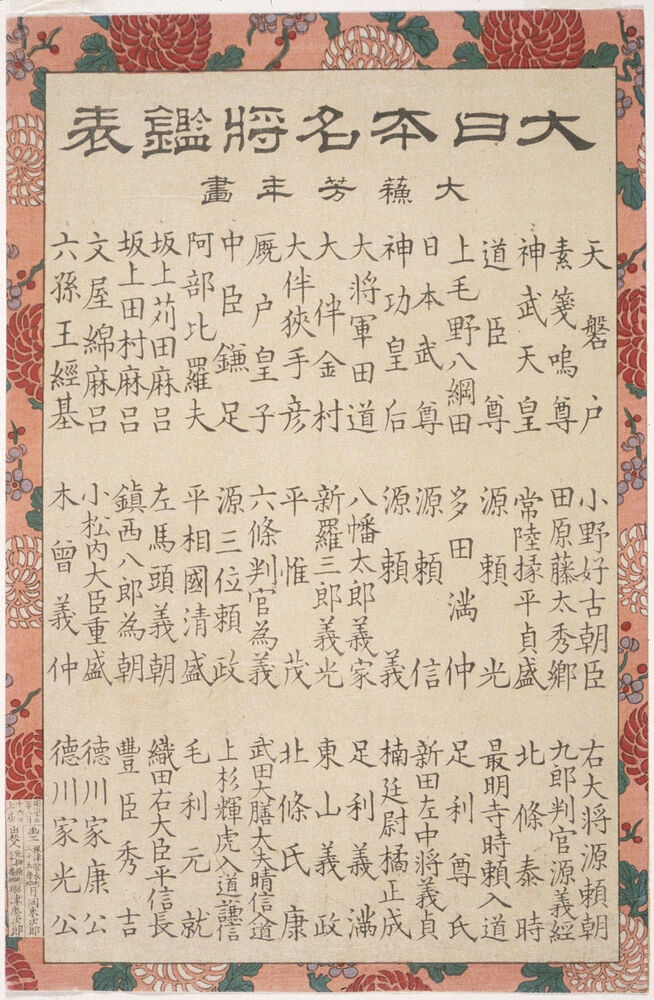 大日本名将鑑表
大蘓芳年畫
天磐戸
素箋嗚尊
神武天皇
道臣尊
上毛野八綱田
日本武尊
神功皇后
大将軍田道
大伴金村
大伴狹手彦
厩戸皇子
中臣鎌足
阿部比羅夫
坂上苅田麻呂
坂上田村麻呂
文屋綿麻呂
六孫王經基
小野好古朝臣
田原藤太秀郷
常陸掾平貞盛
源頼光
多田満仲
源頼信
源頼義
八幡太郎義家
新羅三郎義光
平惟茂
六條判官為義
源三位頼政
平相國清盛
左馬頭義朝
鎮西八郎為朝
小松内大臣重盛
木曾義仲
右大将源頼朝
九郎判官源義經
北條泰時
最明寺時頼入道
足利尊氏
新田左中将義貞
楠廷尉橘正成
足利義満
東山義政
北條氏康
武田大膳大夫晴信入道
上杉輝虎入道謙信
毛利元就
織田右大臣平信長
豐臣秀吉
德川家康公
德川家光公
月岡米次郎